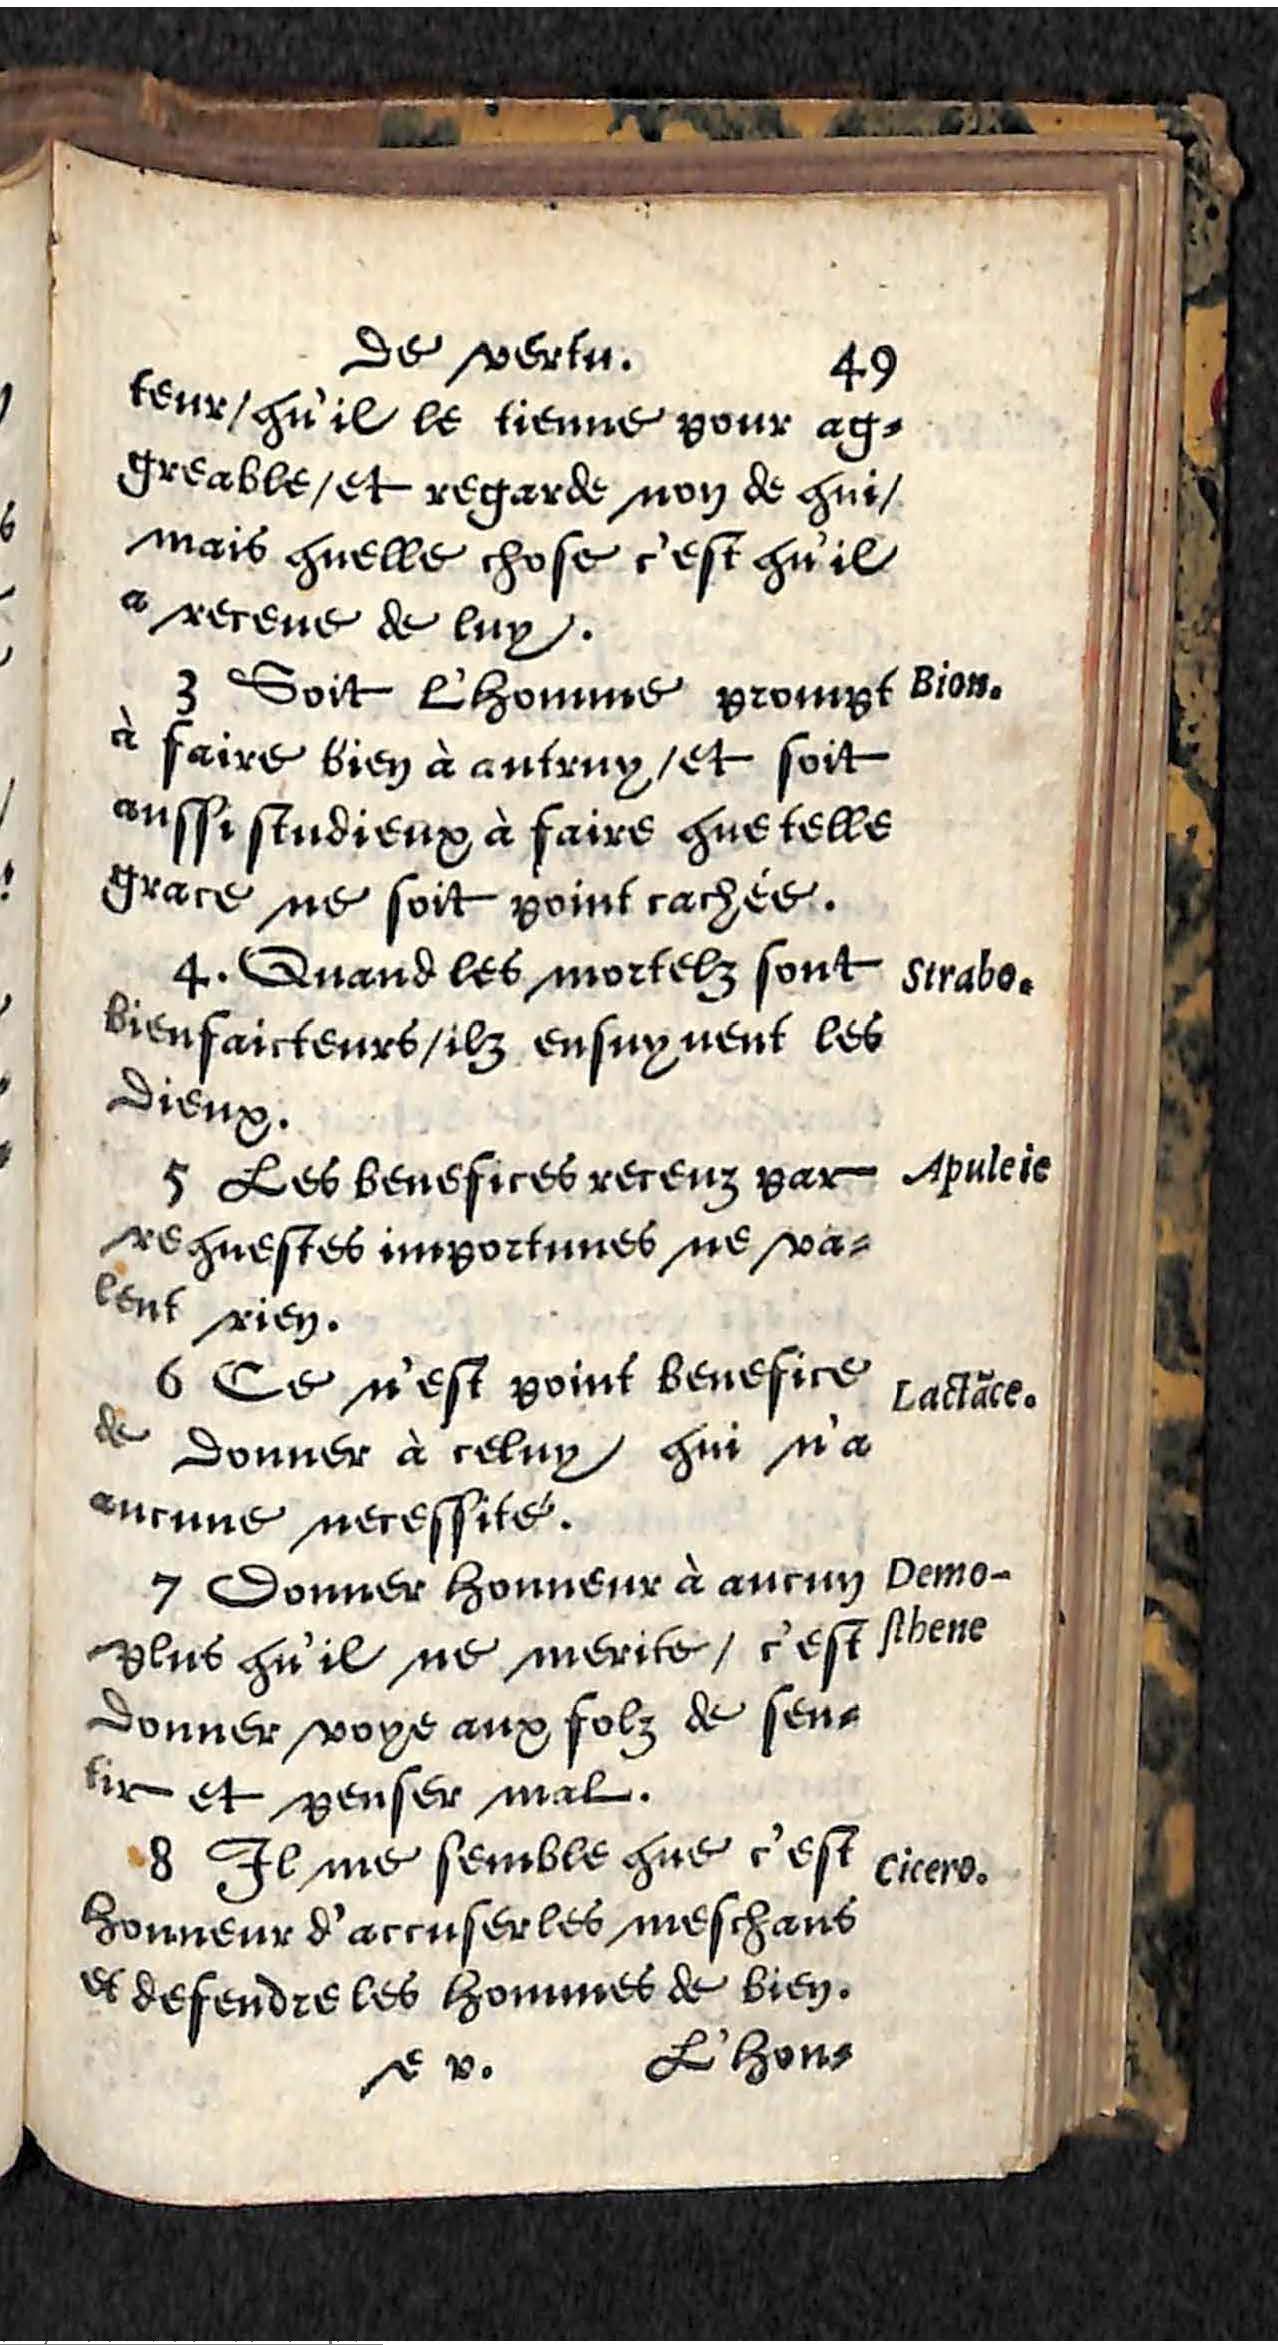 De vertu. 49
teur/qu'il le tienne pour ag-
greable/et regarde non de qui/
mais quelle chose c'est qu'il
a receue de luy.
3 Soit L'homme prompt Bion.
à faire bien à autruy/et soit
aussi studieux à faire que telle
grace ne soit point cachée.
4. Quand les mortelz sont Strabo.
bienfaicteurs/ilz ensuyuent les
Dieux.
5 Les benefices receuz par Apuleie
requestes importunes ne va-
lent rien.
6 Ce n'est point benefice Lactāce.
de Donner à celuy qui n'a
aucune necessité.
7 Donner honneur à aucun Demo-
plus qu'il ne merite/ c'est sthene
Donner voye aux folz de sen-
tir et penser mal.
8 Il me semble que c'est Cicero.
honneur d'accuser les meschans
et defendre les hommes de bien.
e v. L'hon-